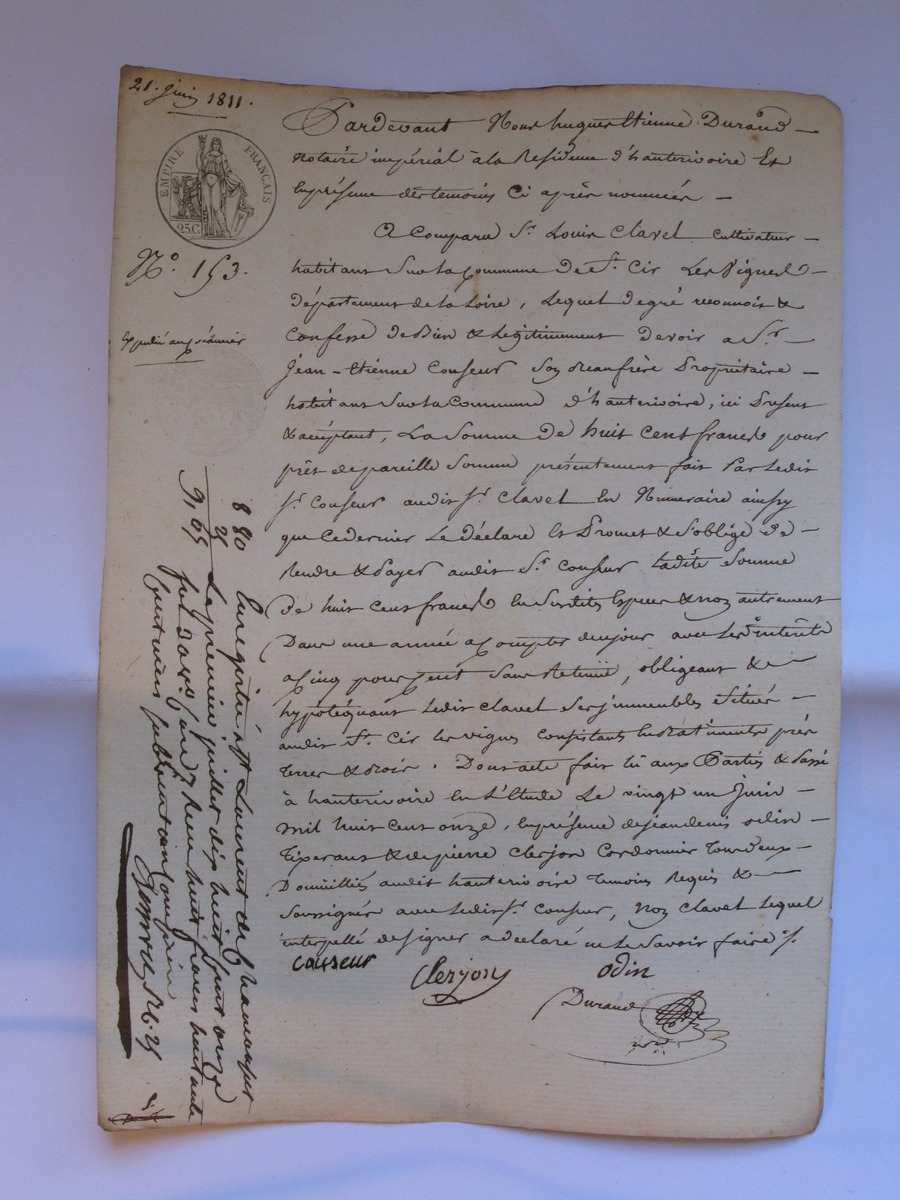 21. juin 1811.
EMPIRE FRANÇAIS
25.C.
N.º 153.
Expédié au créancier
Pardevant Nous hugues Etienne Durand
notaire impérial à la Residence d'hauterivoire Et
En présence des temoins Ci après nommés
A Comparu Sr. Louis Clavel Cultivateur
habitant Sur la Commune de St. Cir Les Vignes
département de la Loire, Lequel de gré reconnois &
Confesse de Bien & Légitimement devoir a Sr.
Jean-Etienne Couseur Son Beaufrère Propriétaire
habitant Sur la Commune d'hauterivoire, ici Présent
& acceptant, La Somme de huit Cent francs pour
prêt de pareille Somme présentement fait Par Ledit
Sr. Couseur audit Sr. Clavel En Numeraire ainsy
que Ce dernier Le déclare Et Promet & S'oblige de
Rendre & Payer audit Sr. Couseur Ladite Somme
de huit Cent francs En Susdites Espèces & non autrement
Dans une année a Compter de ce jour avec Les interêts
a Cinq pour Cent Sans Retenue, obligeant &
hypotéquant Ledit Clavel Ses immeubles Situés
audit St. Cir les vignes Consistants En Batiments près
terres & Bois. Dont acte fait lu aux Parties & Passé
à hauterivoire En L'Etude Le vingt un Juin
mil huit Cent onze, En présence de jean denis odin
Tixerant & de pierre Clerjon Cordonnier Tous deux
Domiciliés audit hauterivoire temoins Requis &
Soussignés avec Ledit Sr. Couseur, Non Clavel Lequel
interpellé de Signer a déclaré ne Le Savoir faire ./.
couseur
Clerjon
odin
Durand
8 80
25
9,05
Enregistré à St Laurent de Chamousset
Le premier juillet dix huit Cent onze
huit francs huitante
Centimes Subvention Comprise